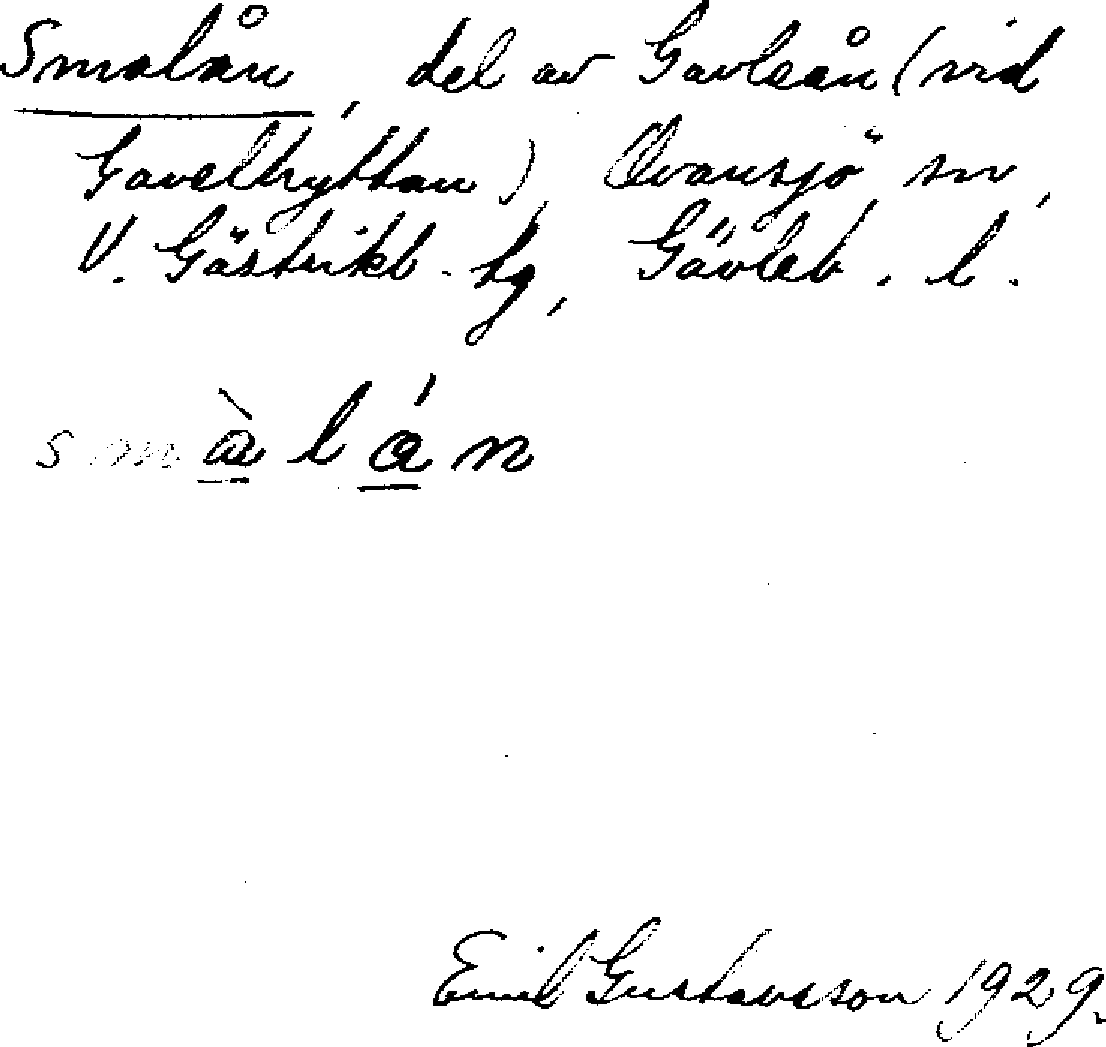 Smalån, del av Gavleån (vid
Gavelhyttan), Ovansjö sn,
V. Gästrikl. tg, Gävleb. l.
smàlán
Emil Gustavsson 1929.